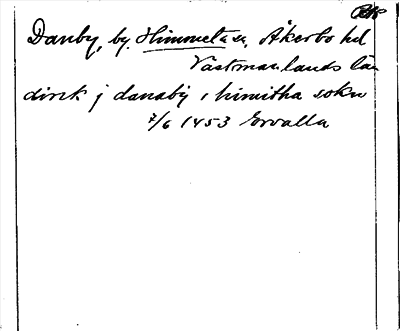 Danby, by. Himmeta sn, Åkerbo hd
Västmanlands län
dirik j danaby i himitha sokn
2/6 1453 Ervalla